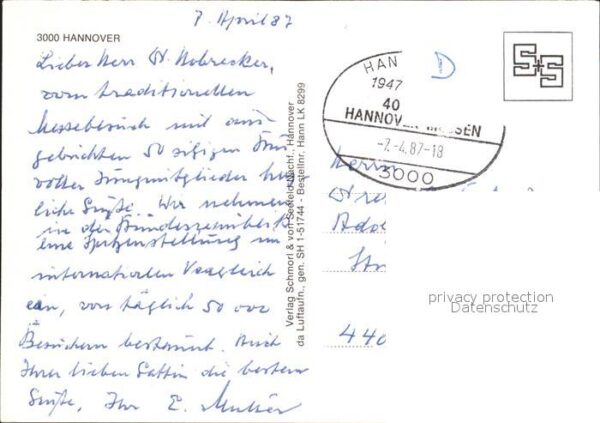 7. April 87
3000 HANNOVER
Lieber Herr Dr. Nobrecker,
vom traditionellen
Messebesuch mit
50
voller Jungmitglieder herz-
liche Grüße. Wir nehmen
in der Bundesrepublik
eine Spitzenstellung im
internationalen Vergleich
ein, von täglich 50 000
Besuchern bestaunt. Auch
Ihrer lieben Gattin die besten
Grüße, Ihr E.
Verlag Schmorl & von Seefeld Nachf., Hannover
da Luftaufn., gen. SH 1-51744 - Bestellnr. Hann LK 8299
HAN
1947
40
HANNOVER MESSEN
-7.-4.87-18
3000
D
S+S
Herrn
440
privacy protection
Datenschutz